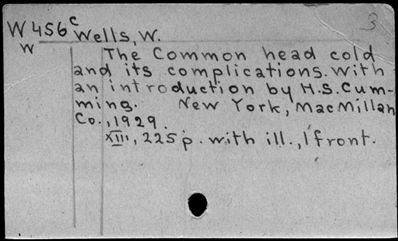 3
W 456c Wells, W.
W
The Common head cold
and its complications. With
an introduction by H.S. Cum-
ming. New York, MacMillan
Co., 1929.
XIII, 225 p. with ill., 1 front.